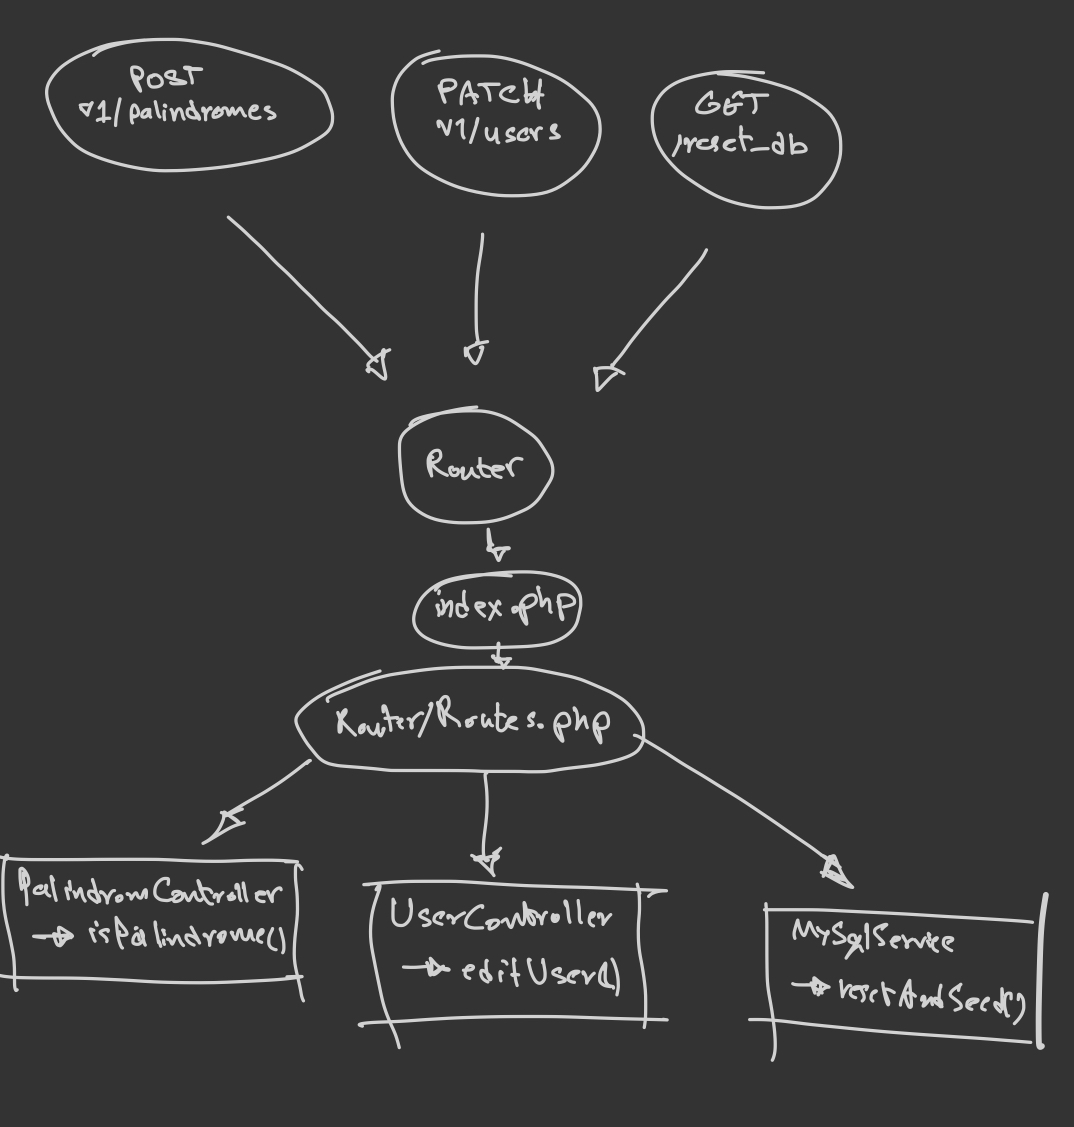 POST
v1/palindromes
PATCH
v1/users
GET
/reset_db
Router
index.php
Router/Routes.php
PalindromController
→ isPalindrome()
UserController
→ editUser()
MySqlService
→ resetAndSeed()